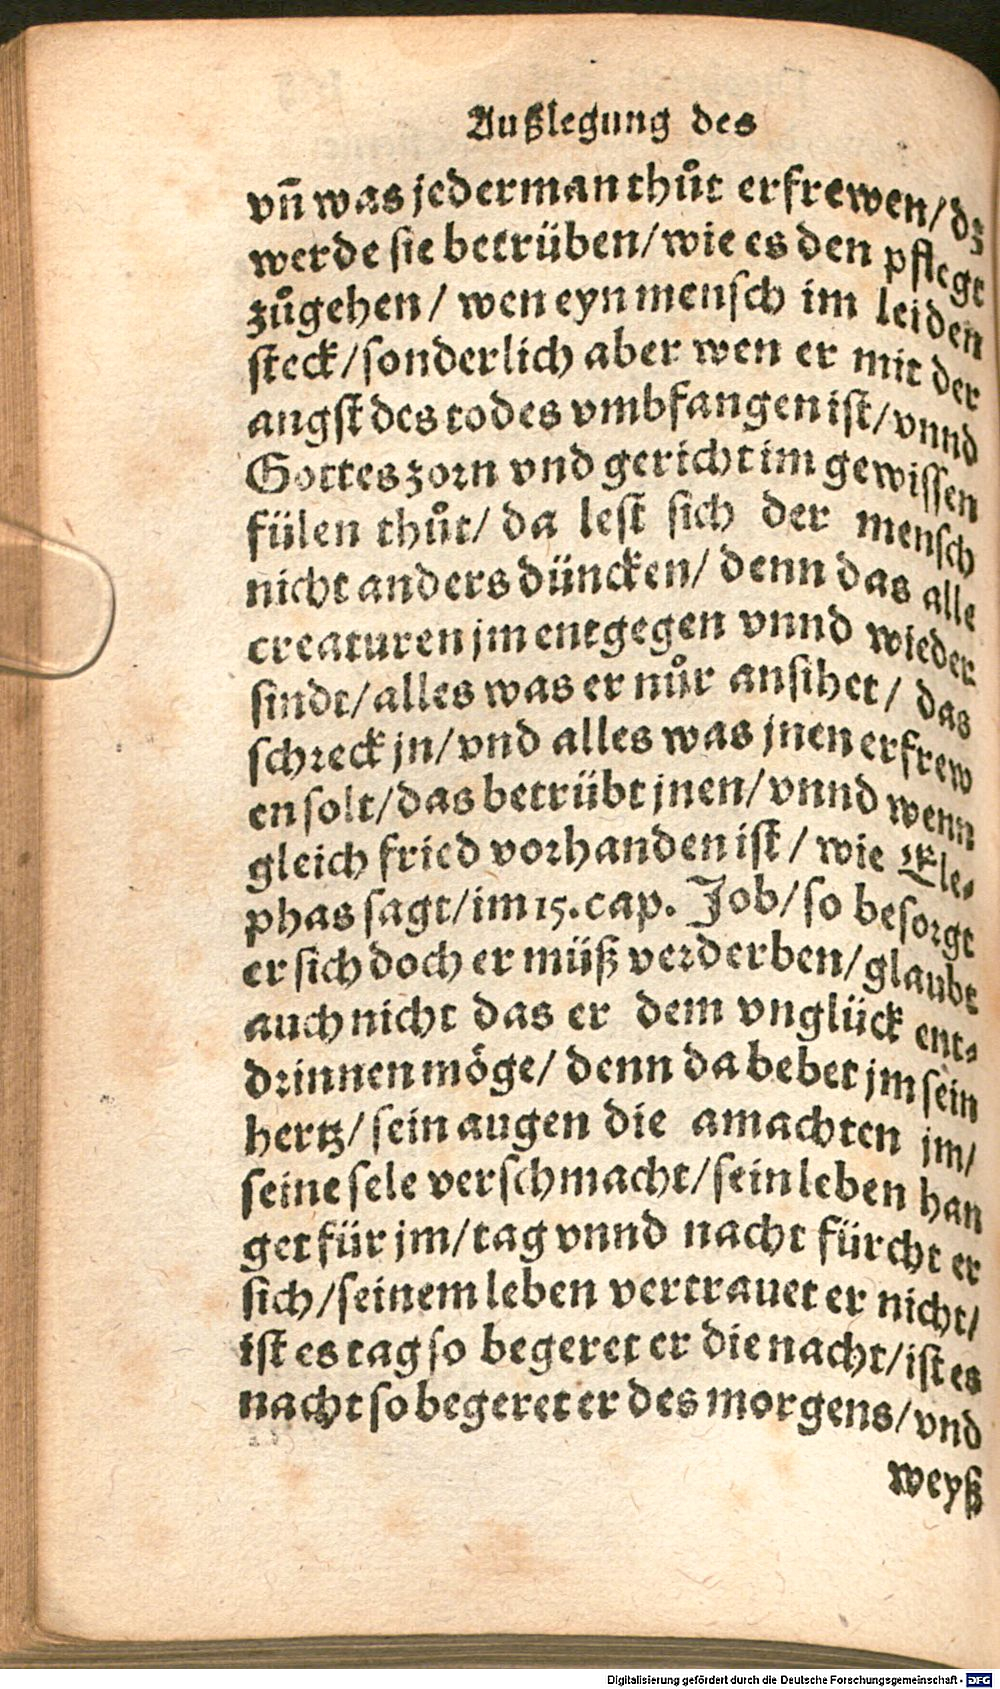 Außlegung des
vn̄ was jederman thůt erfrewen/dz
werde sie betrüben/wie es den pflegt
zůgehen/ wen eyn mensch im leiden
steck/sonderlich aber wen er mit der
angst des todes vmbfangen ist/vnnd
Gottes zorn vnd gericht im gewissen
fülen thůt/ da lest sich der mensch
nicht anders düncken/ denn das alle
creaturen jm entgegen vnnd wieder
sindt/alles was er nůr ansihet/ das
schreck jn/vnd alles was jnen erfrew
en solt/das betrübt jnen/vnnd wenn
gleich fried vorhanden ist/ wie Ele⸗
phas sagt/im 15.cap. Job/so besorgt
er sich doch er müß verderben/glaubt
auch nicht das er dem vnglück ent⸗
drinnen möge/ denn da bebet jm sein
hertz/sein augen die amachten jm/
seine sele verschmacht/sein leben han
get für jm/tag vnnd nacht fürcht er
sich/seinem leben vertrauet er nicht/
ist es tag so begeret er die nacht/ist es
nacht so begeret er des morgens/vnd
weyß
Digitalisierung gefördert durch die Deutsche Forschungsgemeinschaft - DFG